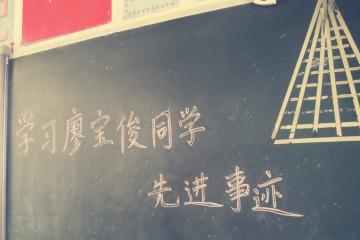 学习廖宝俊同学
先进事迹